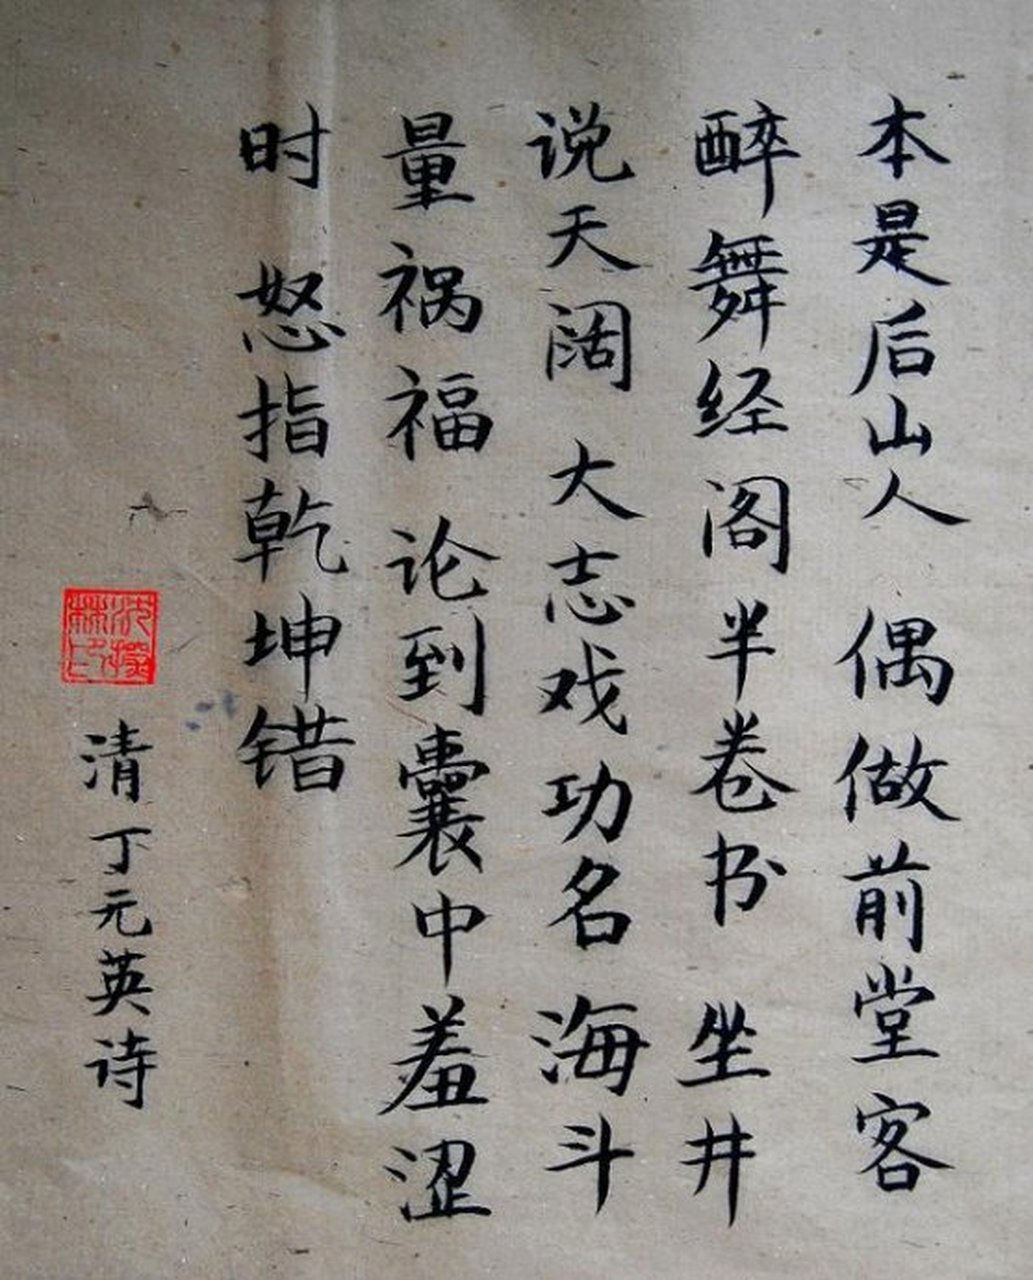 本是后山人 偶做前堂客
醉舞经阁半卷书 坐井
说天阔 大志戏功名 海斗
量祸福 论到囊中羞涩
时 怒指乾坤错
清丁元英诗